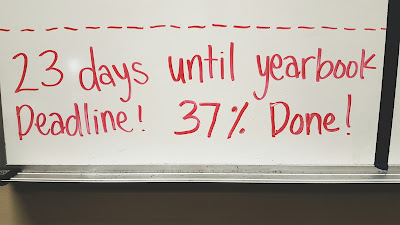 23 days until yearbook
Deadline! 37% Done!